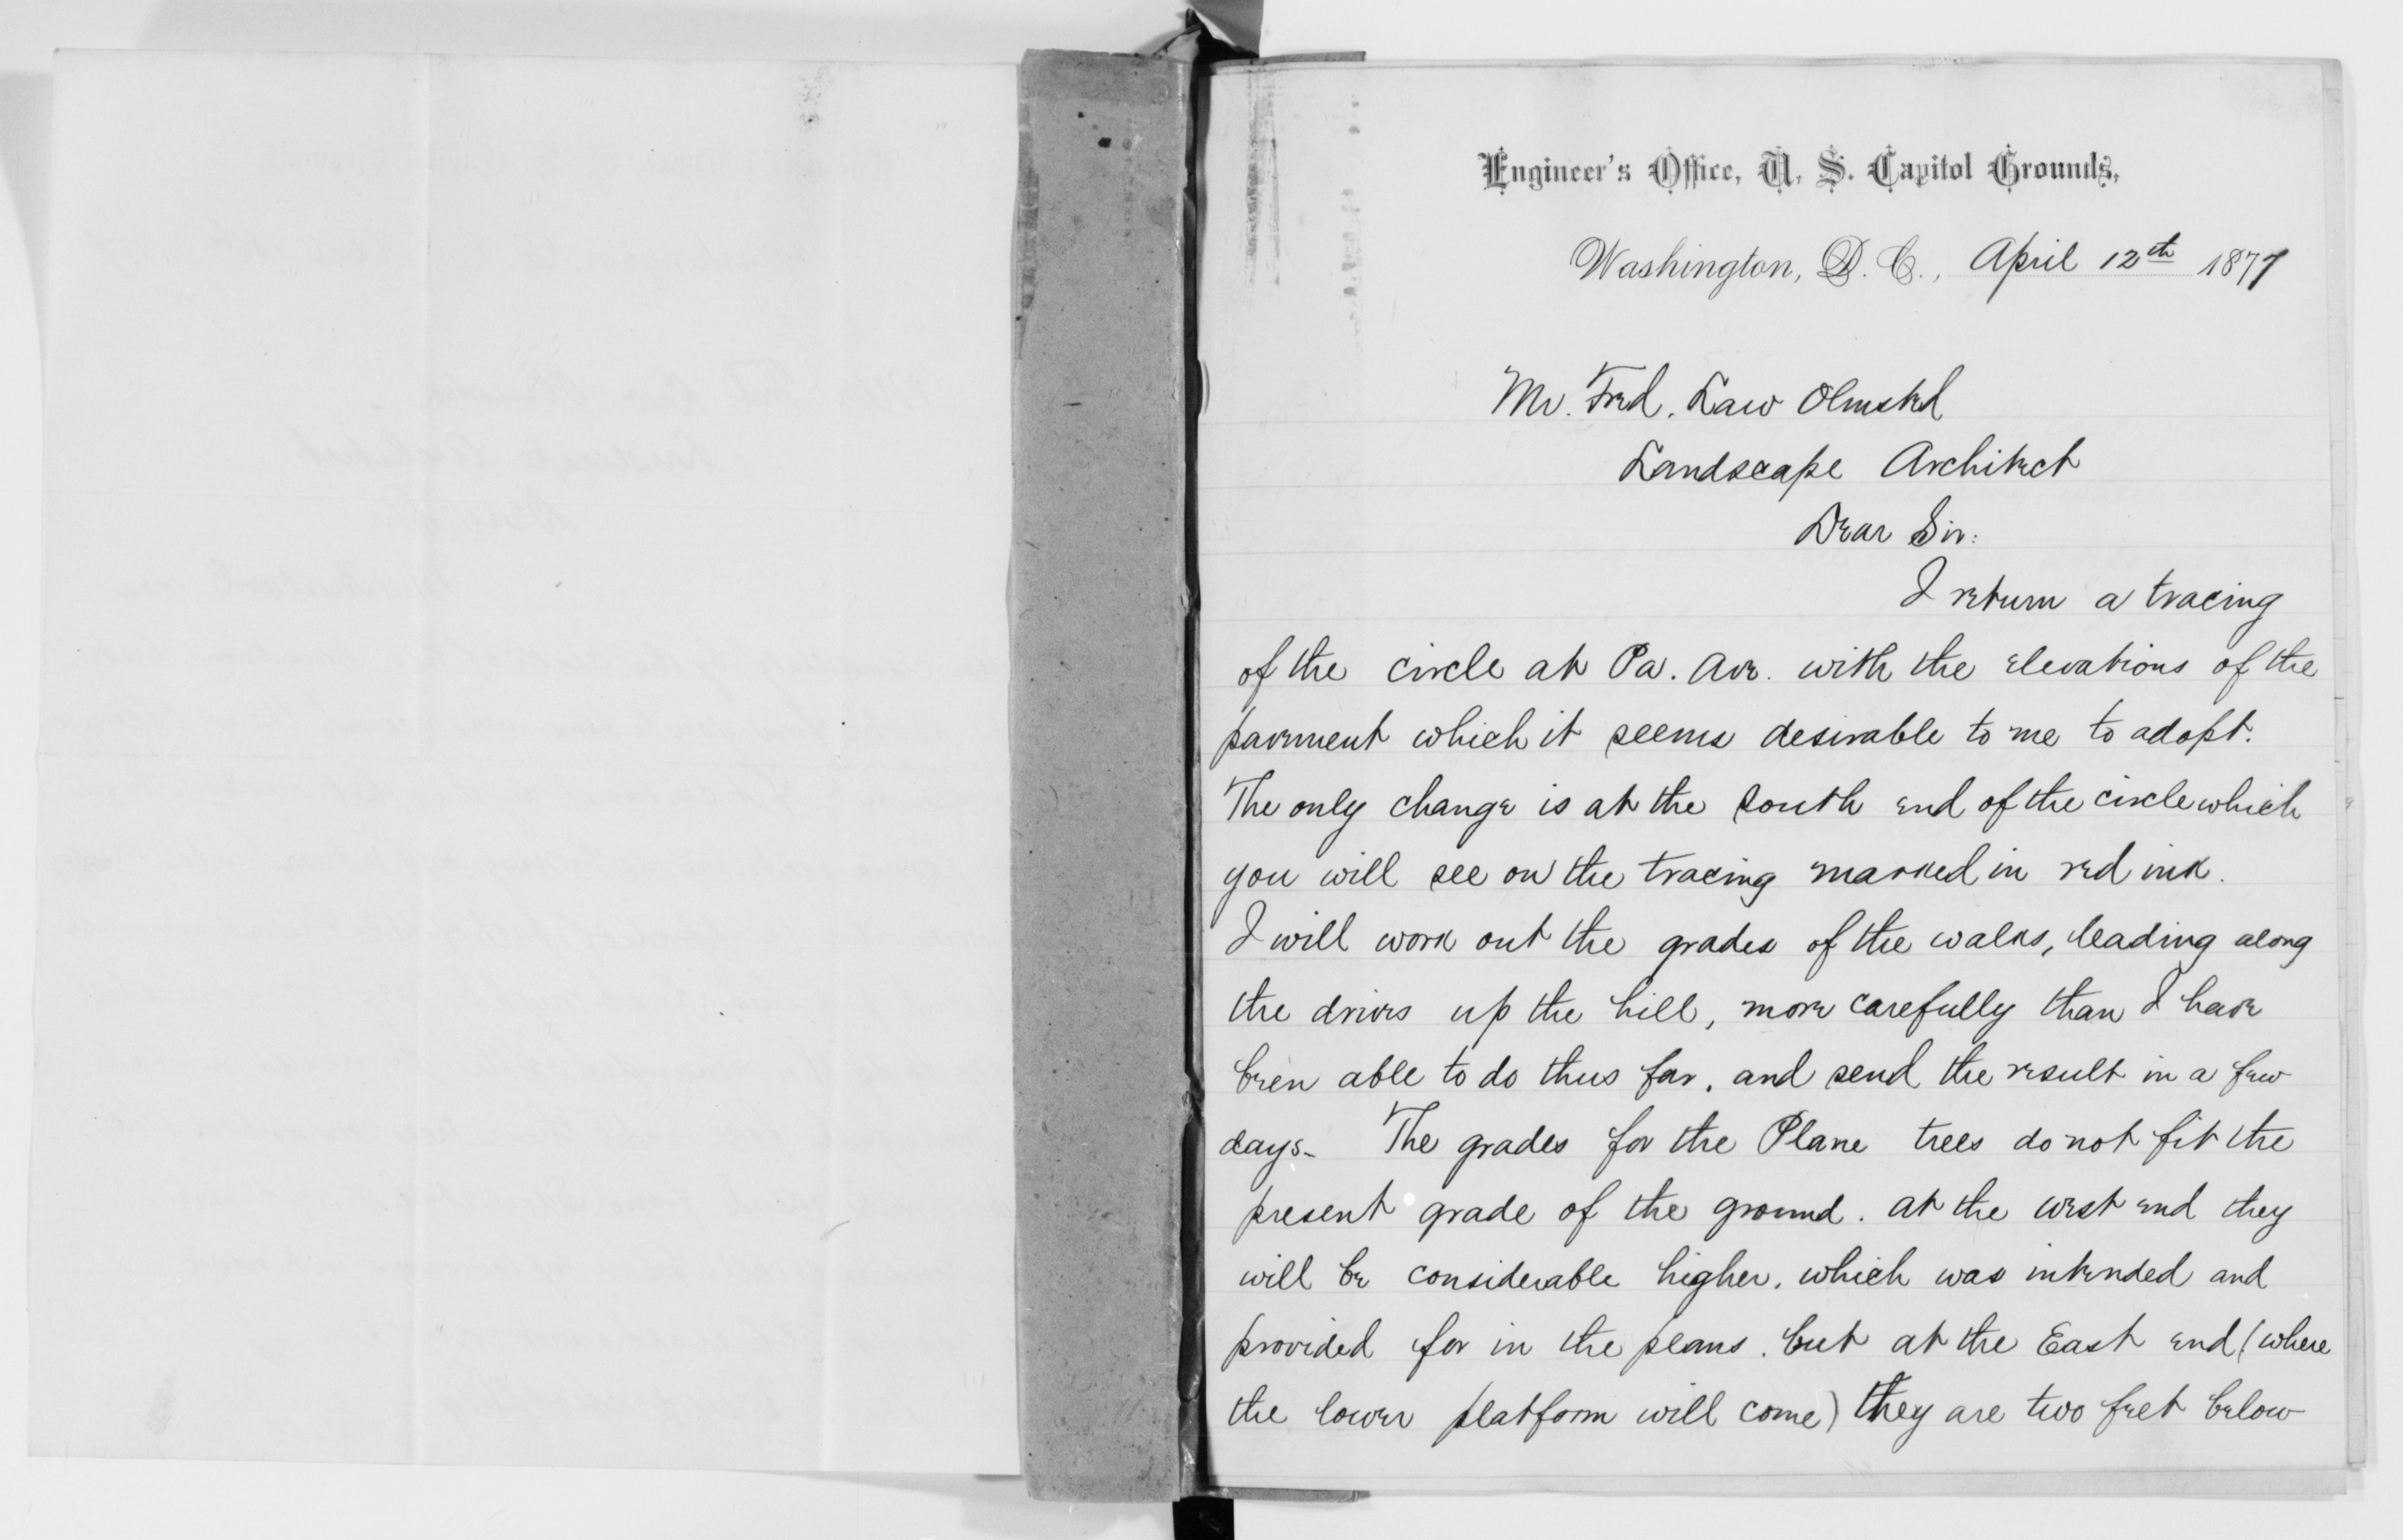 Engineer's Office, U. S. Capitol Grounds,
Washington, D. C., April 12th 1877
Mr. Fred. Law Olmsted
Landscape Architect
Dear Sir:
I return a tracing
of the circle at Pa. Ave. with the elevations of the
pavement which it seems desirable to me to adopt.
The only change is at the South end of the circle which
you will see on the tracing marked in red ink.
I will work out the grades of the walks, leading along
the drives up the hill, more carefully than I have
been able to do thus far, and send the result in a few
days. The grades for the Plane trees do not fit the
present grade of the ground. At the west end they
will be considerable higher, which was intended and
provided for in the plans. but at the East end (where
the lower platform will come) they are two feet below